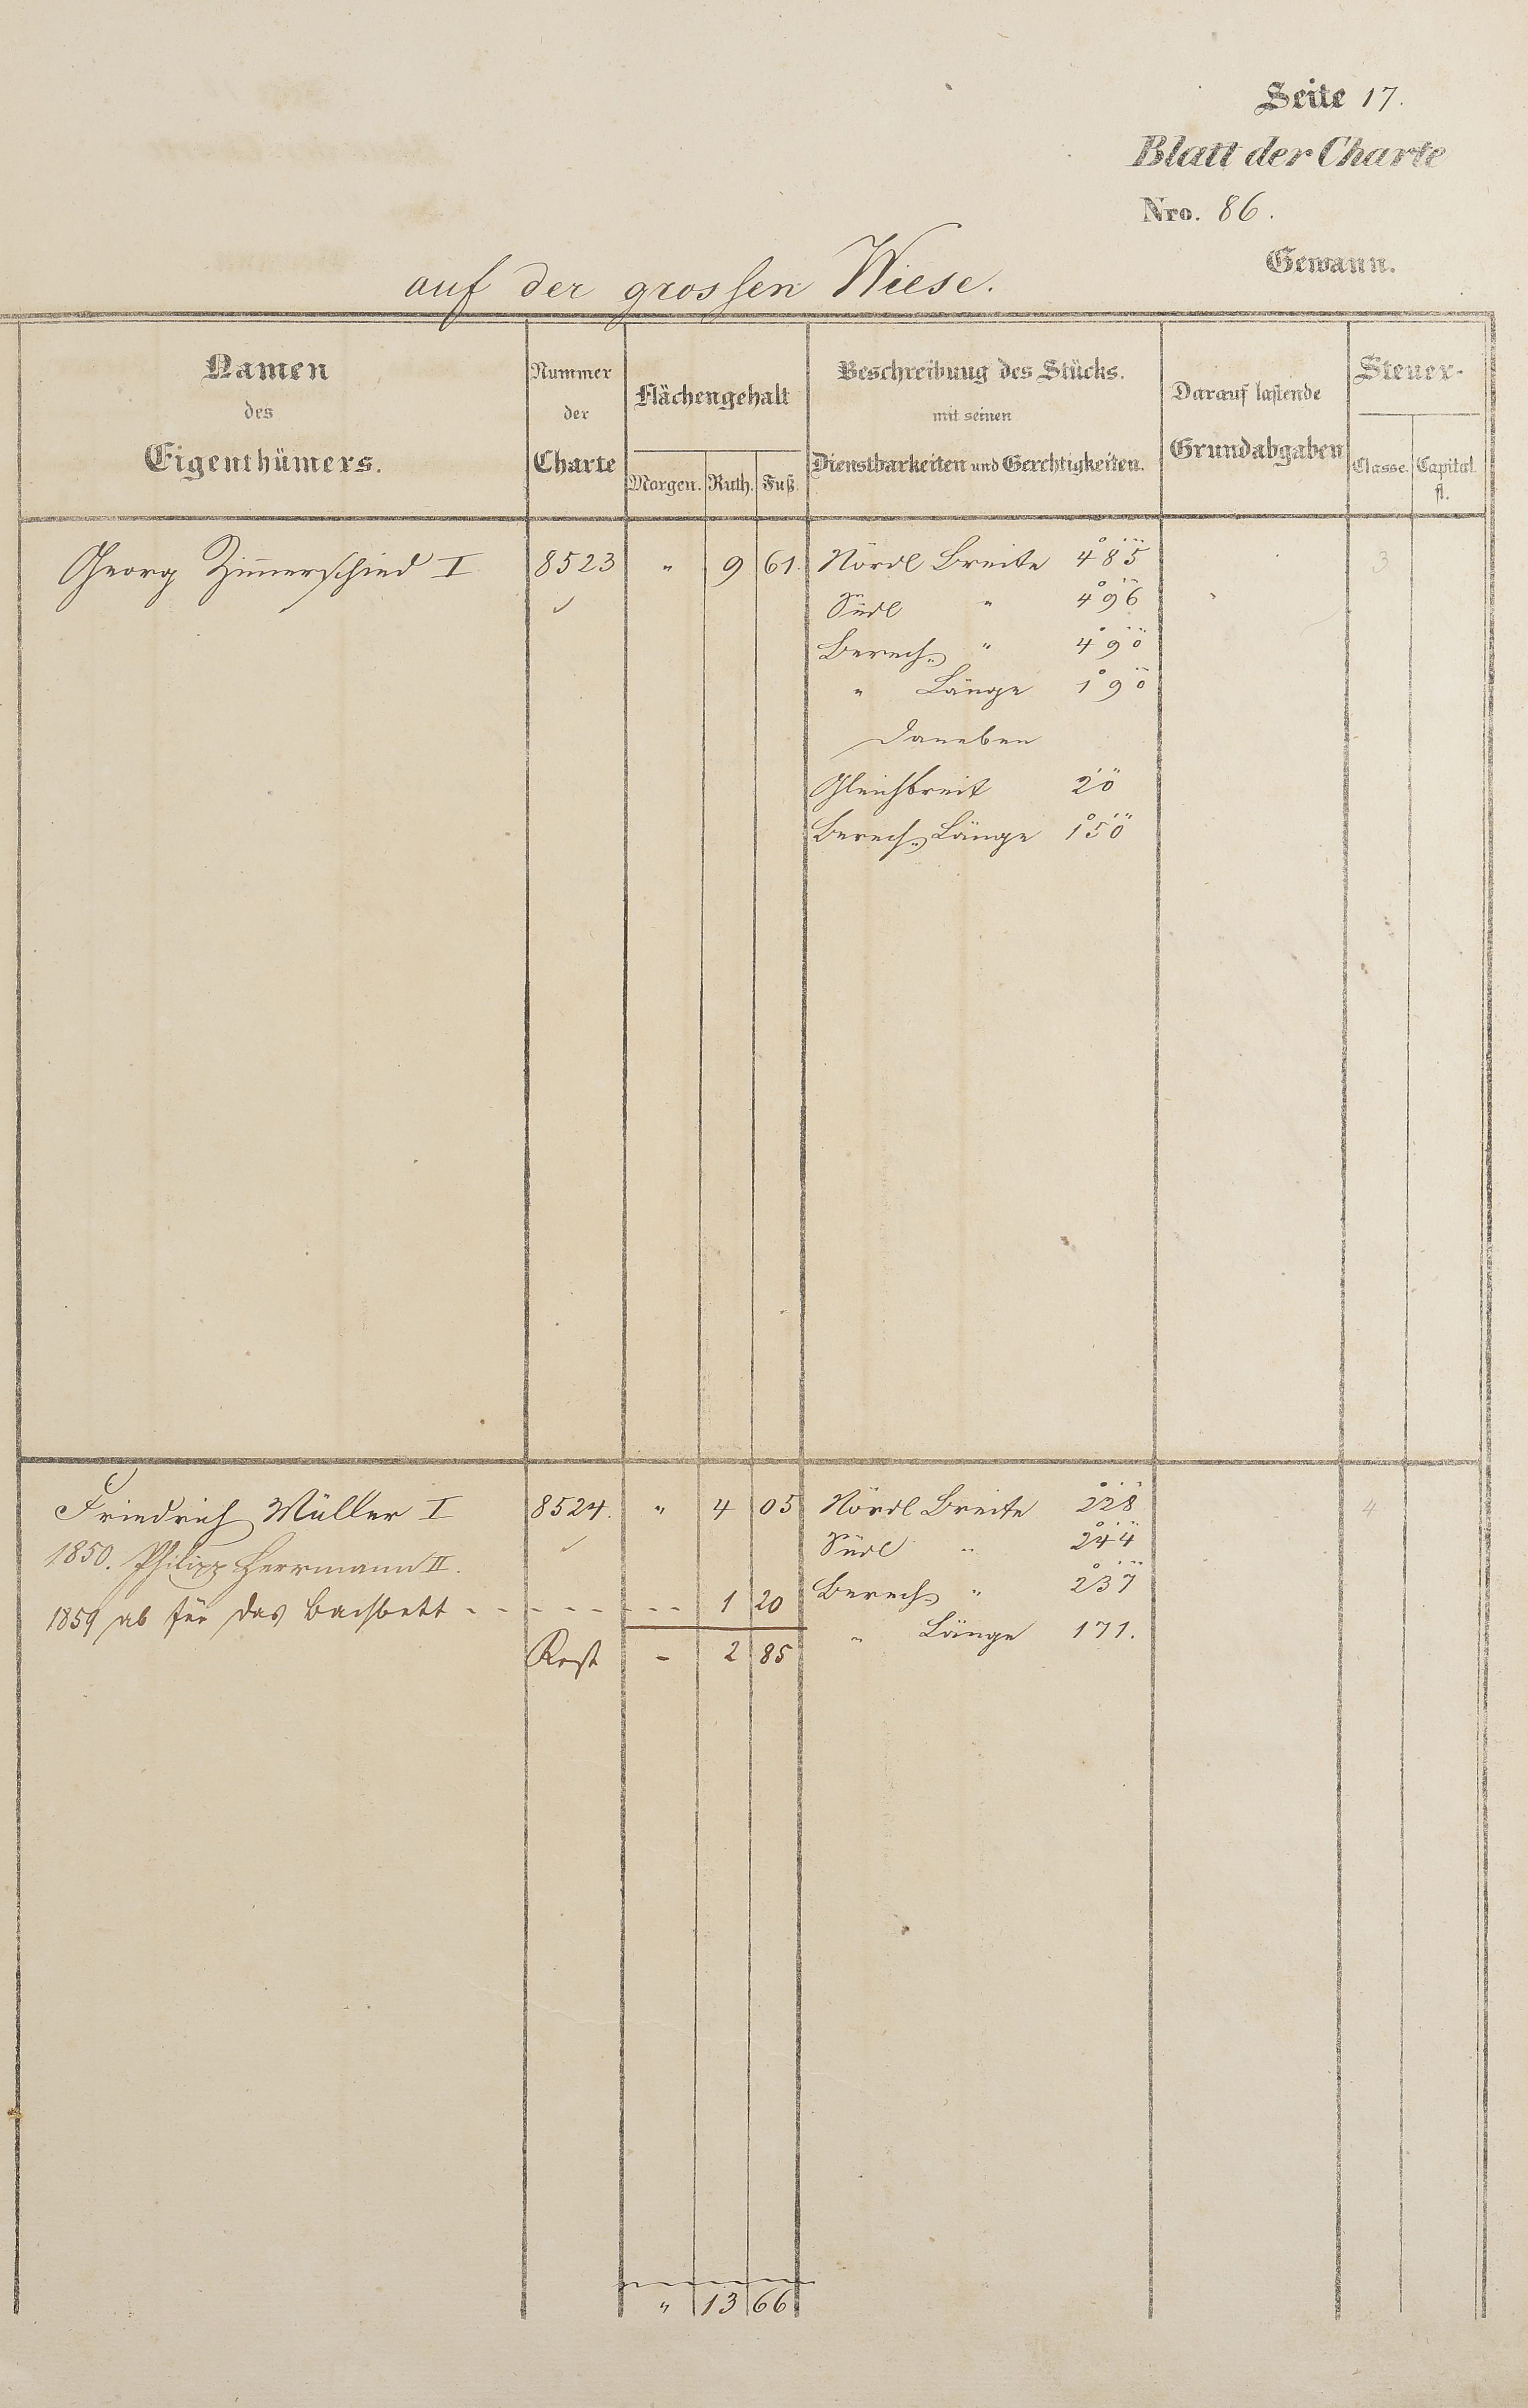 Seite 17.
Blatt der Charte
Nro. 86.
Gewann.
auf der grossen Wiese.
Namen
des
Eigenthümers.
Nummer
der
Charte
Flächengehalt
Morgen. Ruth. Fuß.
Beschreibung des Stücks.
mit seinen
Dienstbarkeiten und Gerechtigkeiten.
Darauf lastende
Grundabgaben
Steuer-
Classe. Capital.
fl.
Georg Zim̅erschied I 8523 " 9 61. Nördl Breite 485 3
Südl " 496
Berech. " 490
" Länge 190
Daneben
Gleichbreit 20
Berech. Länge 150
Friedrich Müller I 8524. " 4 05 Nördl Breite 228 4
1850. Philipp Herrmann II. Südl " 244
1859 ab für das Bachbett - - - - - - - - 1 20 Berech. " 237
Rest - 2 85 " Länge 171.
" 13 66